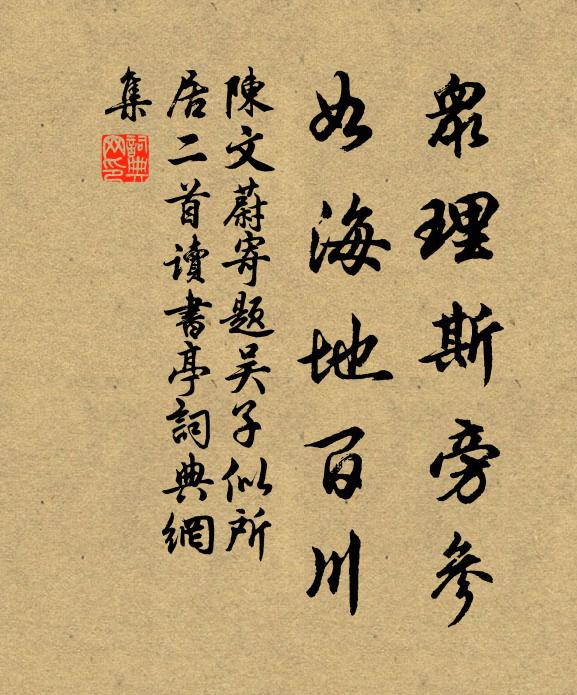 眾理斯旁參
如海地百川
陳文蔚寄題吴子似所
居二首讀書亭詞典網
集
詞典
网印